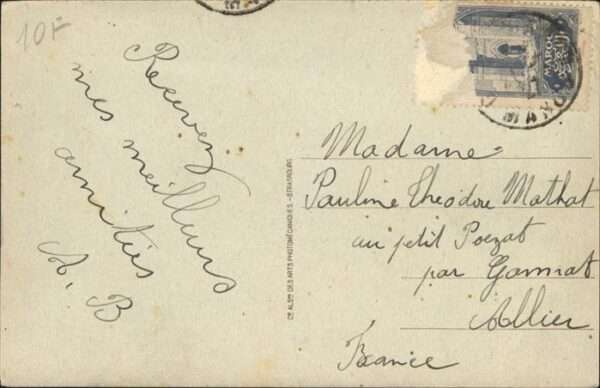 10F
Recevez
mes meilleurs
amitiés
A. B
MAROC
Madame
Pauline Theodore Mathat
au petit Poezat
par Gannat
Allier
France
Cie ALSne DES ARTS PHOTOMÉCANIQUES. - STRASBOURG